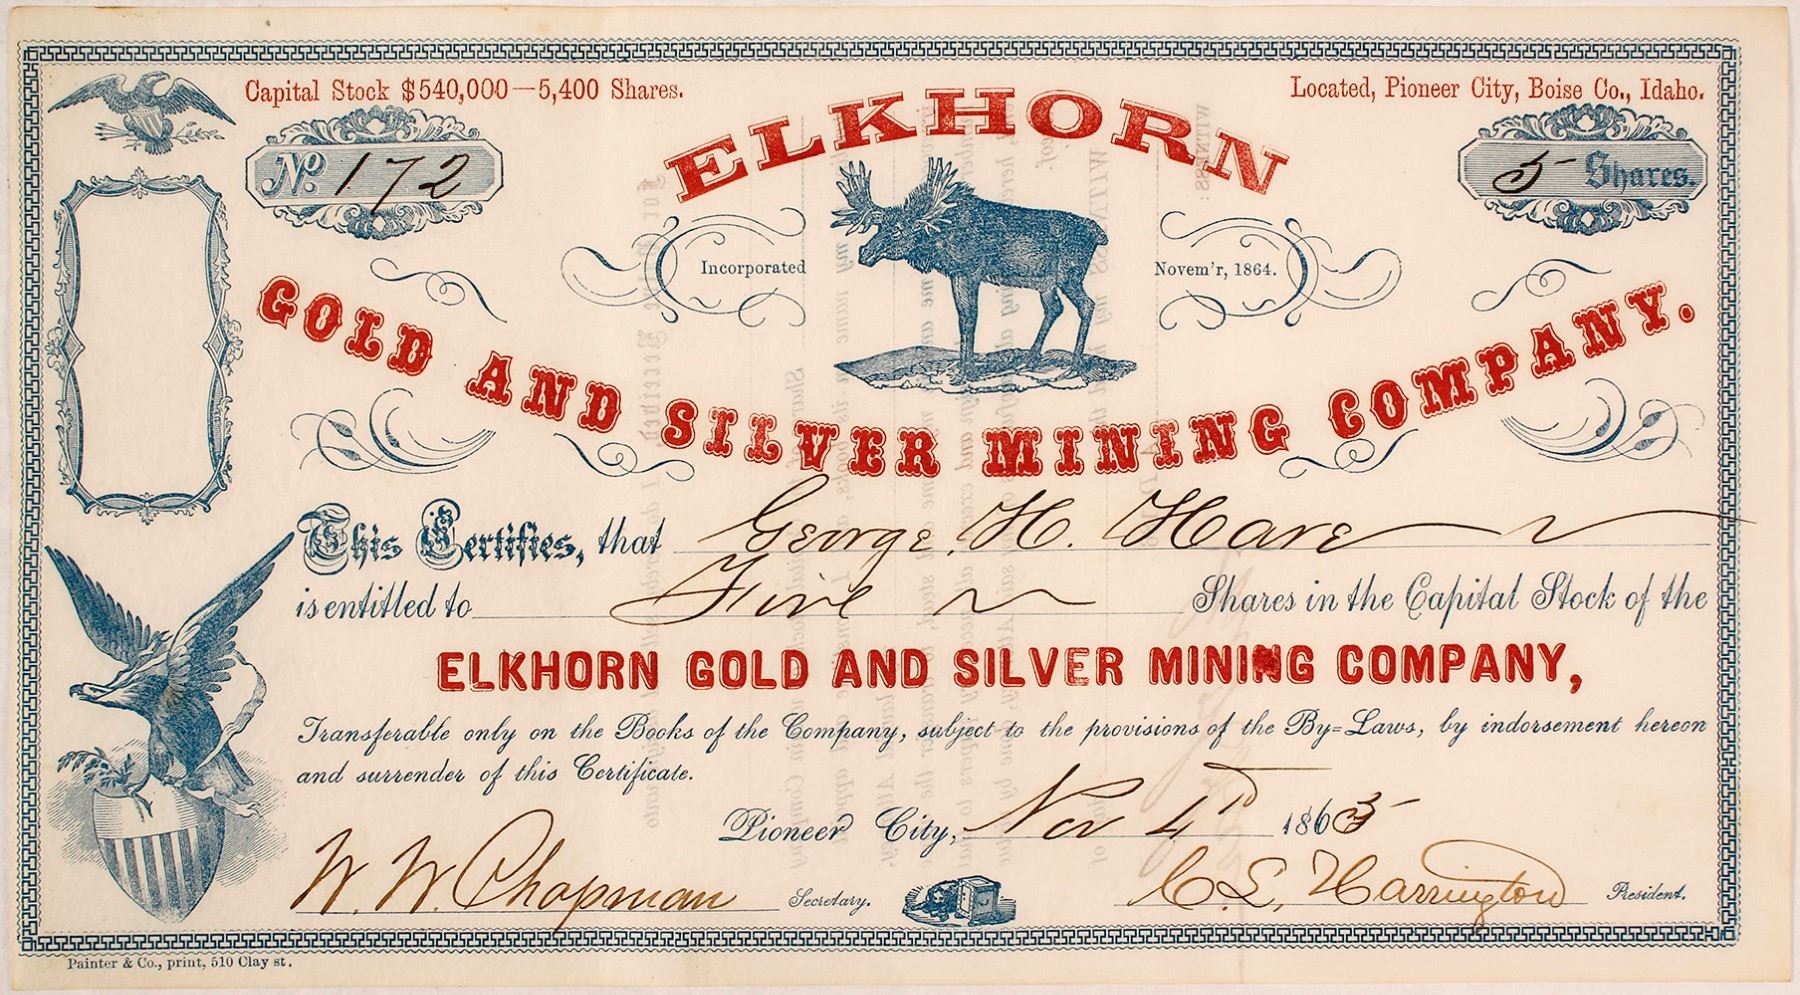 Capital Stock $540,000—5,400 Shares.
Located, Pioneer City, Boise Co., Idaho.
No. 172
ELKHORN
5 Shares.
Incorporated
Novem'r, 1864.
GOLD AND SILVER MINING COMPANY.
This Certifies, that George H. Hare
is entitled to Five Shares in the Capital Stock of the
ELKHORN GOLD AND SILVER MINING COMPANY,
Transferable only on the Books of the Company, subject to the provisions of the By=Laws, by indorsement hereon
and surrender of this Certificate.
Pioneer City, Nov 4th 1865
W. W. Chapman Secretary.
C. L. Harrington President.
Painter & Co., print, 510 Clay st.